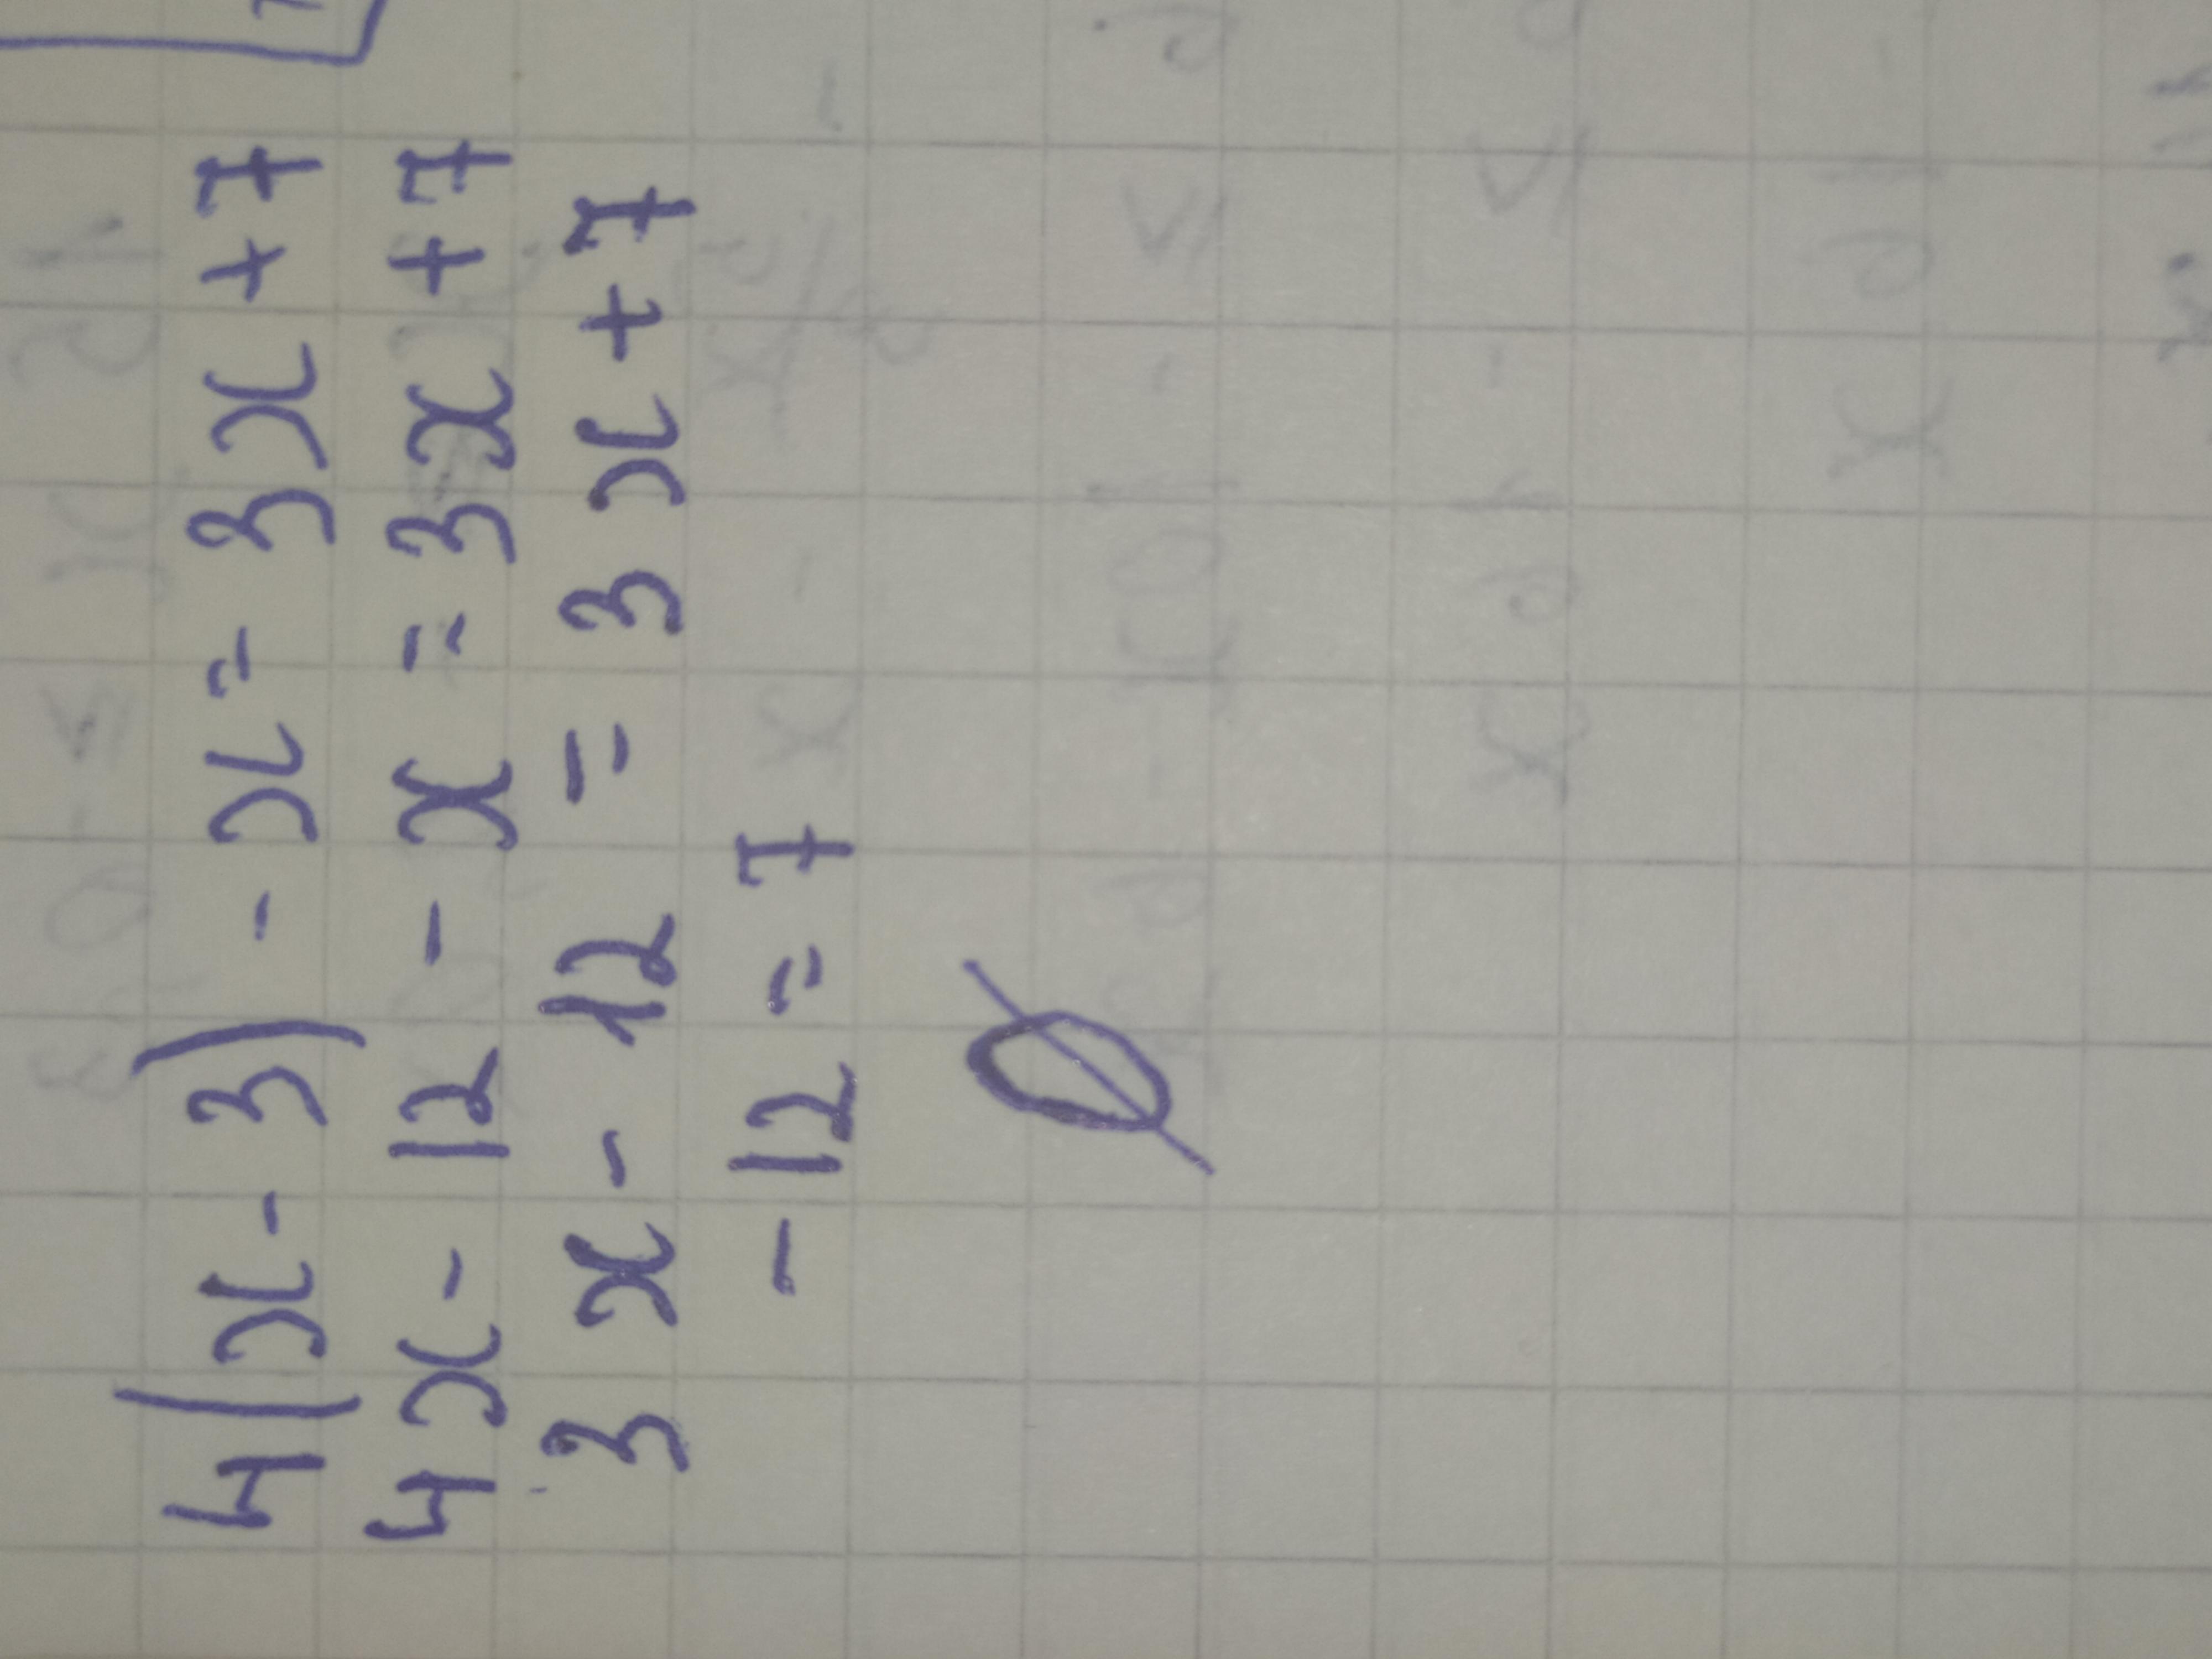 4(x - 3) - x = 3x + 7
4x - 12 - x = 3x + 7
3x - 12 = 3x + 7
- 12 = 7
Ø